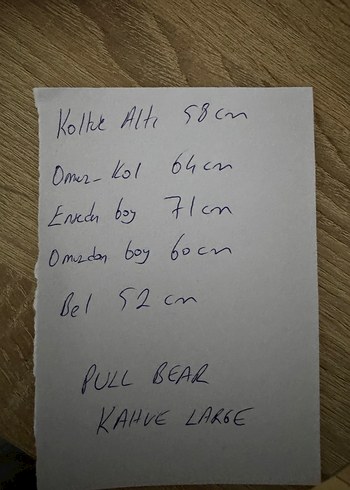 Koltuk Altı 58 cm
Omuz-Kol 64 cm
Enseden boy 71 cm
Omuzdan boy 60 cm
Bel 52 cm
PULL BEAR
KAHVE LARGE